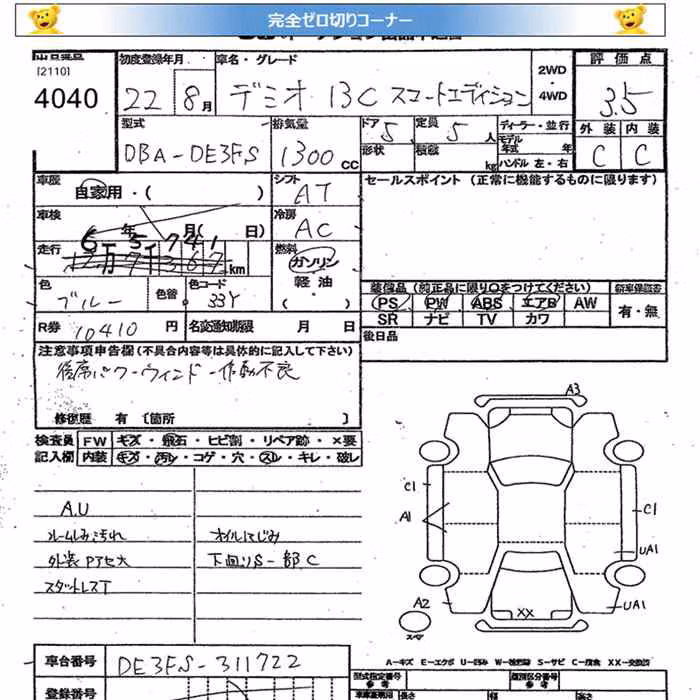 完全ゼロ切りコーナー
[2110]
4040
初度登録年月
22 8月
車名・グレード
デミオ 13C スマートエディション
2WD
・
4WD
評価点
3.5
外装 内装
C C
型式
DBA-DE3FS
排気量
1300CC
ドア 5
形状
定員 5人
積載 kg
ディーラー・並行
モデル年式 年
ハンドル 左・右
車歴
自家用・( )
シフト
AT
セールスポイント (正常に機能するものに限ります)
車検
年 月( 日)
冷房
AC
走行
6 5 741
km
燃料
ガソリン
軽油
( )
色
ブルー
色替
色コード
33Y
装備品 (純正品に限り○をつけてください)
PS PW ABS エアB AW
SR ナビ TV カワ
新車保証書
有・無
R券 10410 円
名変通知期限 月 日
後日品
注意事項申告欄(不具合内容等は具体的に記入して下さい)
後席パワーウィンドー作動不良
修復歴 有 〔箇所 〕
検査員 FW キズ・飛石・ヒビ割・リペア跡・×要
記入欄 内装 キズ・汚レ・コゲ・穴・スレ・キレ・破レ
A.U
ルームしみ汚れ
外装PアセA大
スタットレスT
オイルにじみ
下回りS一部C
A3
C1
A1
C1
UA1
A2
XX
UA1
スペア
A-キズ E-エクボ U-凹み W-補修跡 S-サビ C-腐食 XX-交換済
車台番号
DE3FS-311722
登録番号
型式指定番号
参考
類別区分番号
参考
長さ
幅
高さ